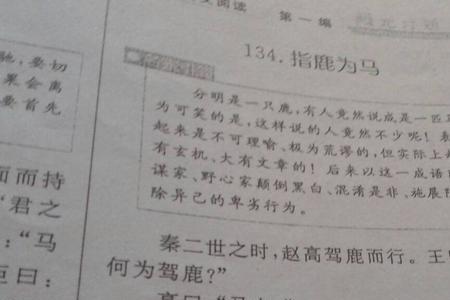 文阅读 第一编
134. 指鹿为马
分明是一只鹿，有人竟然说成是一匹
为可笑的是，这样说的人竟然不少呢！
起来是不可理喻、极为荒谬的，但实际上
有玄机、大有文章的！后来以这一成语
谋家、野心家颠倒黑白、混淆是非、施展
除异己的卑劣行为。
秦二世之时，赵高驾鹿而行。王
何为驾鹿？”
驰，要切
果会离
要首先
面而持
“君之
：“马
臣曰：